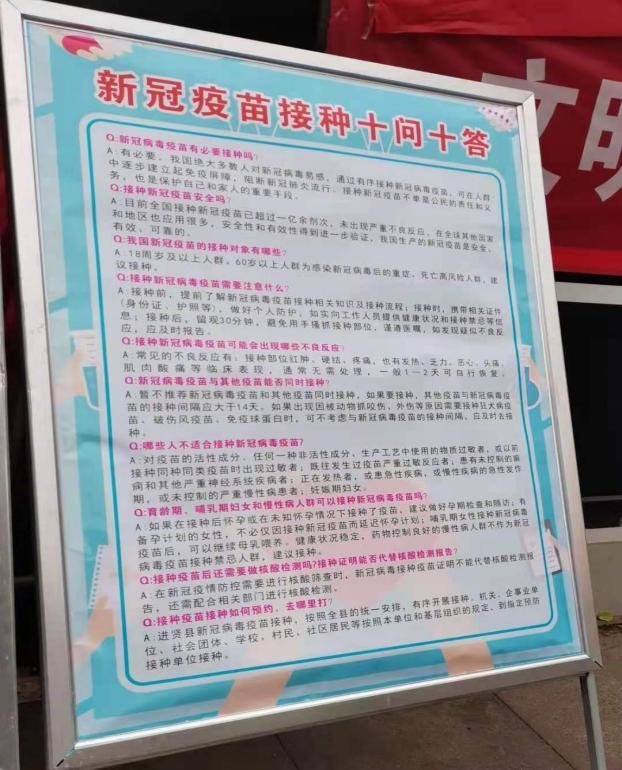 新冠疫苗接种十问十答
Q:新冠病毒疫苗有必要接种吗?
A:有必要。我国绝大多数人对新冠病毒易感，通过有序接种新冠病毒疫苗，可在人群
中逐步建立起免疫屏障，阻断新冠肺炎流行。接种新冠疫苗不单是公民的责任和义
务，也是保护自己和家人的重要手段。
Q:接种新冠疫苗安全吗?
A:目前全国接种新冠疫苗已超过一亿余剂次，未出现严重不良反应，在全球其他国家
和地区也应用很多，安全性和有效性得到进一步验证，我国生产的新冠疫苗是安全、
有效、可靠的。
Q:我国新冠疫苗的接种对象有哪些?
A:18周岁及以上人群。60岁以上人群为感染新冠病毒后的重症、死亡高风险人群，建
议接种。
Q:接种新冠病毒疫苗需要注意什么?
A:接种前，提前了解新冠病毒疫苗接种相关知识及接种流程；接种时，携带相关证件
(身份证、护照等)，做好个人防护，如实向工作人员提供健康状况和接种禁忌等信
息；接种后，留观30分钟，避免用手搔抓接种部位，谨遵医嘱，如发现疑似不良反
应，应及时报告。
Q:接种新冠病毒疫苗可能会出现哪些不良反应?
A:常见的不良反应有：接种部位红肿、硬结、疼痛，也有发热、乏力、恶心、头痛、
肌肉酸痛等临床表现，通常无需处理，一般1—2天可自行恢复。
Q:新冠病毒疫苗与其他疫苗能否同时接种?
A:暂不推荐新冠病毒疫苗和其他疫苗同时接种，如果要接种，其他疫苗与新冠病毒疫
苗的接种间隔应大于14天。如果出现因被动物抓咬伤、外伤等原因需要接种狂犬病疫
苗、破伤风疫苗、免疫球蛋白时，可不考虑与新冠病毒疫苗的接种间隔，应及时去接
种。
Q:哪些人不适合接种新冠病毒疫苗?
A:对疫苗的活性成分、任何一种非活性成分、生产工艺中使用的物质过敏者，或以前
接种同种同类疫苗时出现过敏者；既往发生过疫苗严重过敏反应者；患有未控制的癫
痫和其他严重神经系统疾病者；正在发热者，或患急性疾病，或慢性疾病的急性发作
期，或未控制的严重慢性病患者；妊娠期妇女。
Q:育龄期、哺乳期妇女和慢性病人群可以接种新冠病毒疫苗吗?
A:如果在接种后怀孕或在未知怀孕情况下接种了疫苗，建议做好孕期检查和随访；有
备孕计划的女性，不必仅因接种新冠疫苗而延迟怀孕计划；哺乳期女性接种新冠病毒
疫苗后，可以继续母乳喂养。健康状况稳定，药物控制良好的慢性病人群不作为新冠
病毒疫苗接种禁忌人群，建议接种。
Q:接种疫苗后还需要做核酸检测吗?接种证明能否代替核酸检测报告?
A:在新冠疫情防控需要进行核酸筛查时，新冠病毒接种疫苗证明不能代替核酸检测报
告，还需配合相关部门进行核酸检测。
Q:接种疫苗接种如何预约，去哪里打?
A:进贤县新冠病毒疫苗接种，按照全县的统一安排，有序开展接种。机关、企事业单
位、社会团体、学校、村民、社区居民等按照本单位和基层组织的规定，到指定预防
接种单位接种。
文明